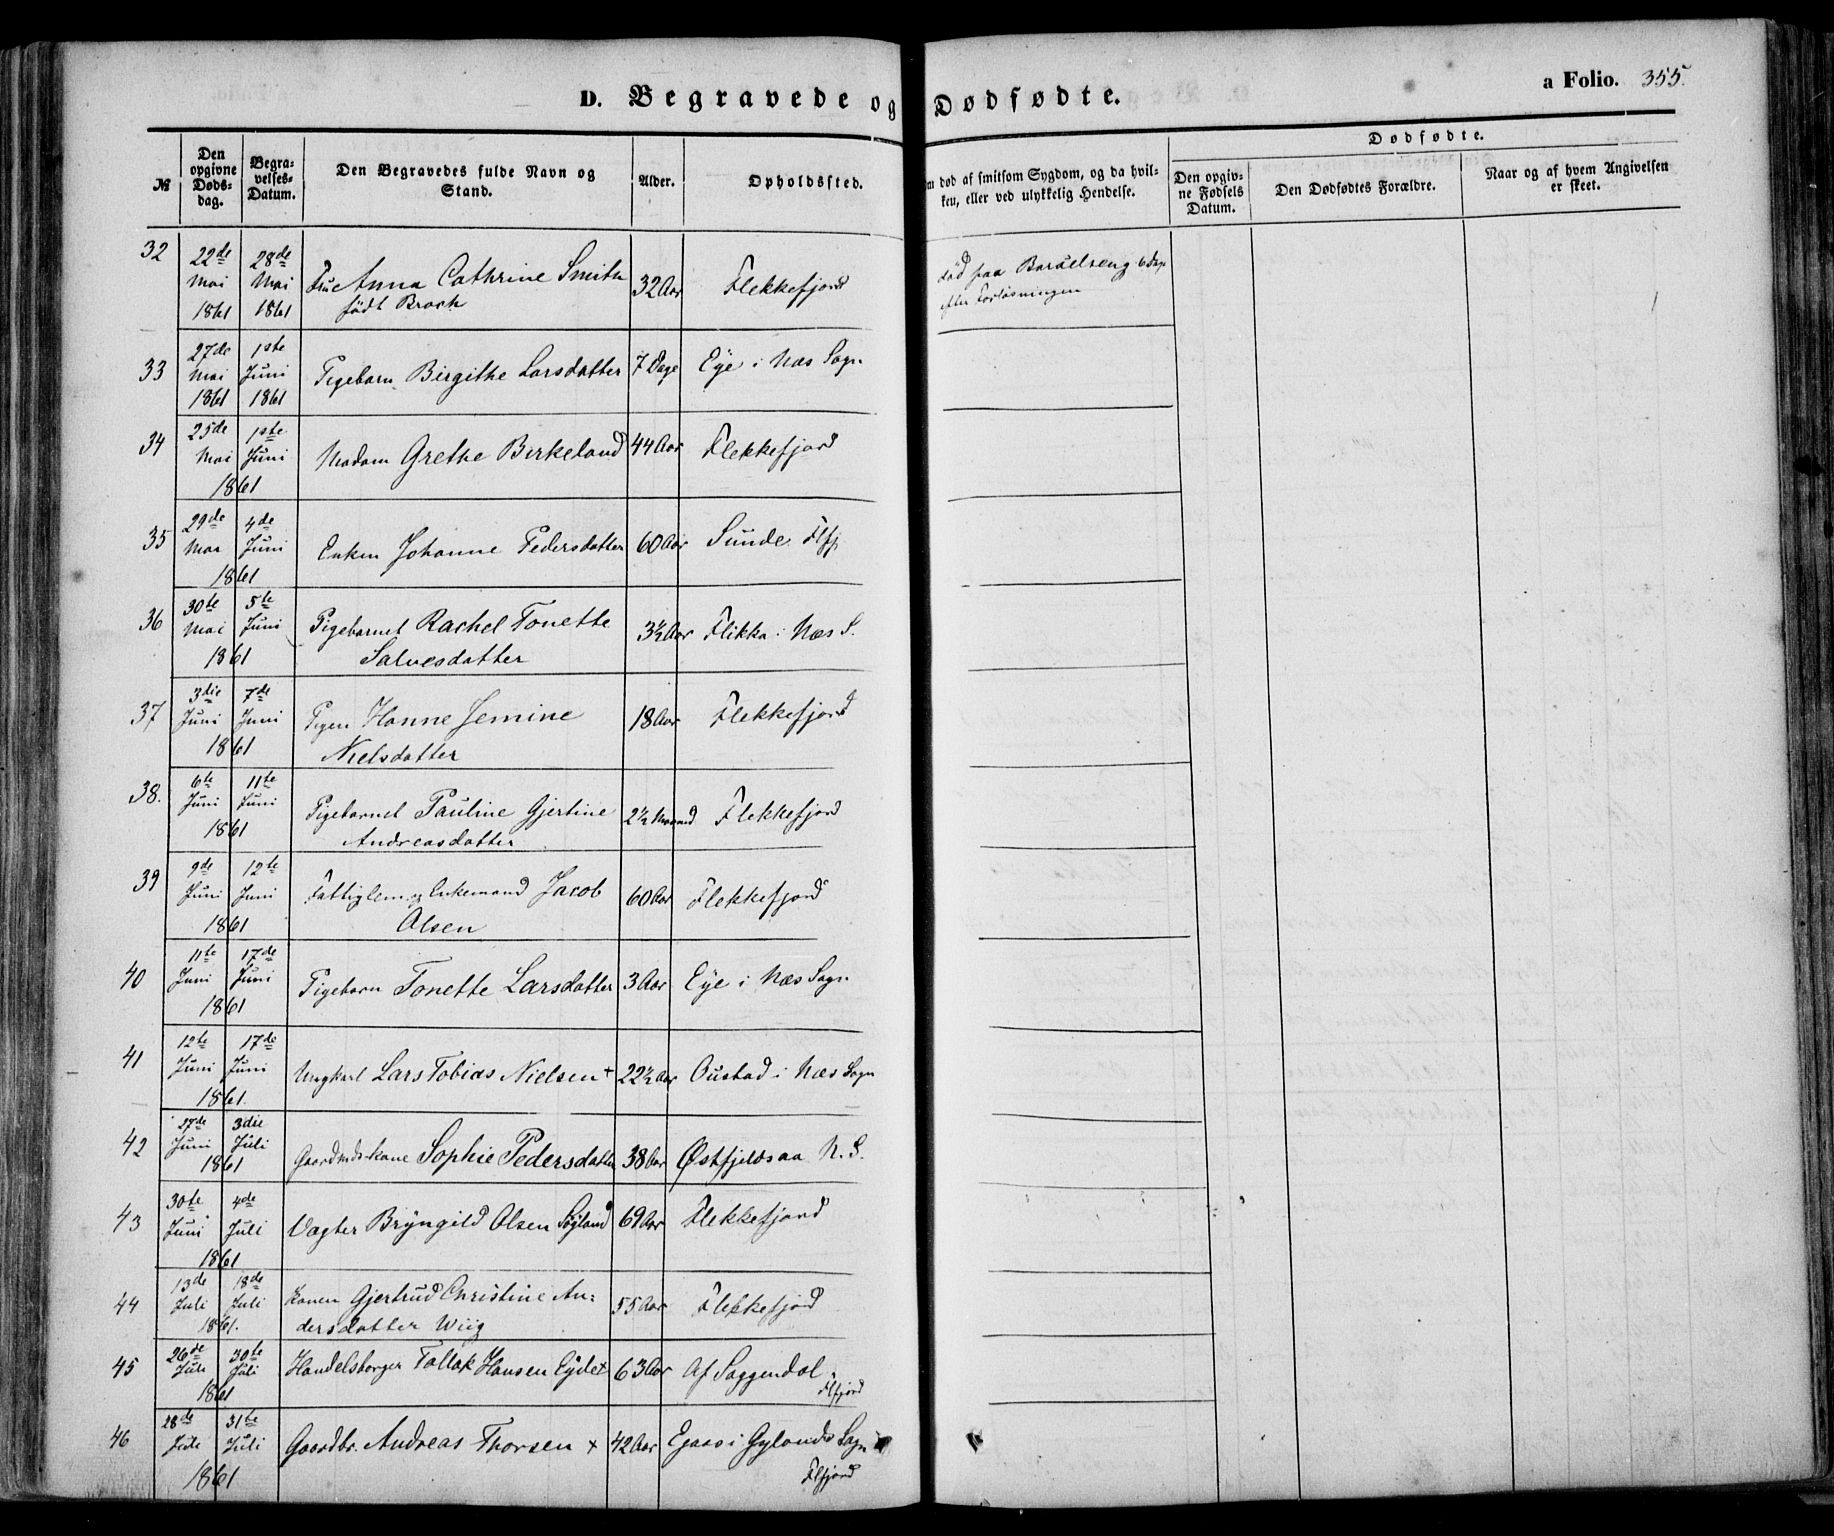 D. Begravede og Dødfødte.
a Folio. 355.
№
Den opgivne Døds-dag.
Begra-velses-Datum.
Den Begravedes fulde Navn og Stand.
Alder.
Opholdssted.
m død af smitsom Sygdom, og da hvil-
ken, eller ved ulykkelig Hendelse.
Dødfødte.
Den opgiv-ne Fødsels Datum.
Den Dødfødtes Forældre.
Naar og af hvem Angivelsen er skeet.
32 22de Mai 1861 28de Mai 1861 Fru Anna Cathrine Smith 32 Aar Flekkefjord
født Broch
Død paa Barselseng 6 Dage
efter Forløsningen
33 27de Mai 1861 1ste Juni 1861 Pigebarn Birgithe Larsdatter 7 Dage Eye i Næs Sogn
34 25de Mai 1ste Juni 1861 Madam Grethe Birkeland 44 Aar Flekkefjord
35 29de Mai 4de Juni 1861 Enken Johanne Pedersdatter 60 Aar Sunde Flfj
36 30te Mai 5te Juni 1861 Pigebarnet Rachel Tonette 3½ Aar Flikka i Næs S.
Salvesdatter
37 3die Juni 7de Juni 1861 Pigen Hanne Jemine 18 Aar Flekkefjord
Nielsdatter
38. 6te Juni 11te Juni 1861 Pigebarnet Pauline Gjertine 2½ Maaned Flekkefjord
Andreasdatter
39 9de Juni 12te Juni 1861 Fattiglem og Enkemand Jacob 60 Aar Flekkefjord
Olsen
40 11te Juni 17de Juni 1861 Pigebarn Tonette Larsdatter 3 Aar Eye i Næs Sogn
41 12te Juni 17de Juni 1861. Ungkarl Lars Tobias Nielsen + 22½ Aar Oustad i Næs Sogn
42 27de Juni 3die Juli 1861 Gaardmdskone Sophie Pedersdatter 38 Aar Østfjeldsaa N. S.
43 30te Juni 4de Juli 1861 Vægter Bryngild Olsen Søyland 69 Aar Flekkefjord
44 13de Juli 18de Juli 1861. Konen Gjertrud Christine An=
dersdatter Wiig 55 Aar Flekkefjord
45 26de Juli 30te Juli 1861 Handelsborger Tollak Hansen Eyde + 63 Aar Af Soggendal
Flfjord
46 28de Juli 31te Juli 1861 Gaardbr. Andreas Thorsen + 42 Aar Egaas i Gylands Sogn
Flfjord